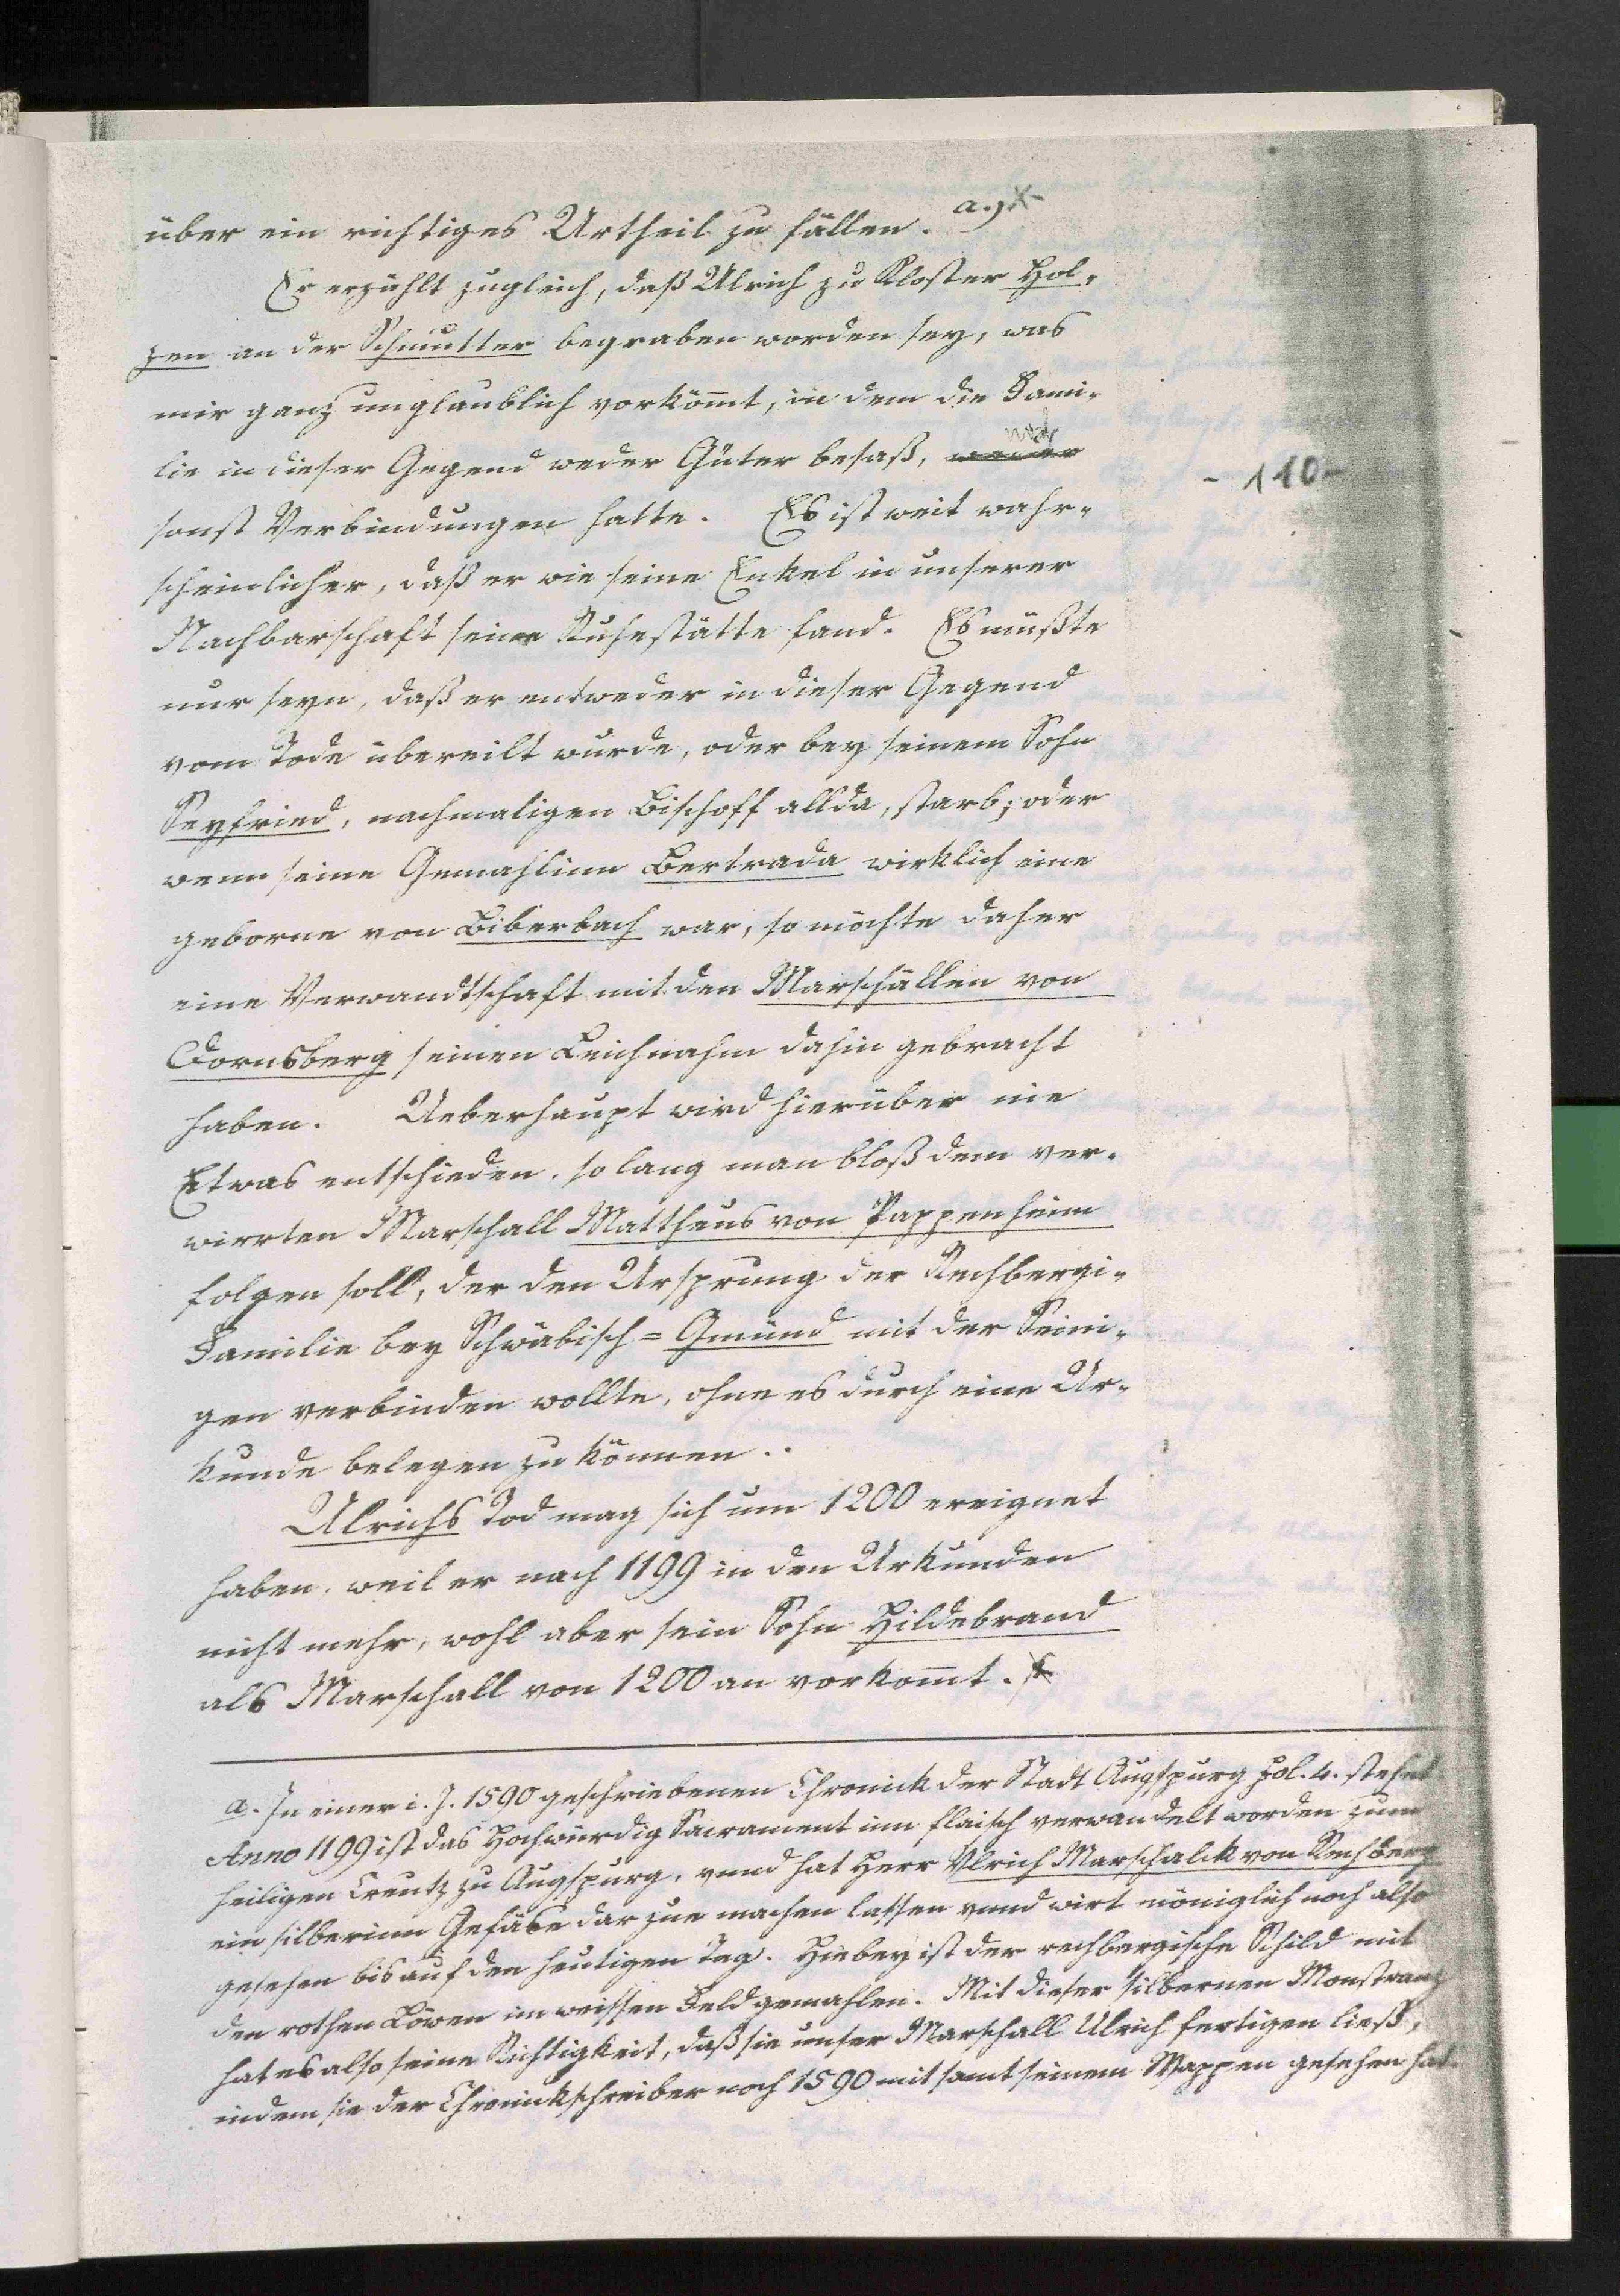 über ein richtiges Urtheil zu fällen. a.)
Er erzählt zugleich, daß Ulrich zu Kloster Hol-
zen an der Schmutter begraben worden sey, was
mir ganz unglaublich vorkömt, in dem die Fami-
lie in dieser Gegend weder Güter besaß, weder noch
sonst Verbindungen hatte. Es ist weit wahr-
scheinlicher, daß er wie seine Enkel in unserer
Nachbarschaft seine Ruhestätte fand. Es müßte
nur seyn, daß er entweder in dieser Gegend
vom Tode übereilt wurde, oder bey seinem Sohn
Seyfried, nachmaligen Bischoff allda, starb; oder
wenn seine Gemahlinn Bertrada wirklich eine
geborne von Biberbach war, so möchte daher
eine Verwandtschaft mit den Marschällen von
Dornsberg seinen Leichnahm dahin gebracht
haben. Ueberhaupt wird hierüber nie
Etwas entschieden, so lang man bloß dem ver-
wirrten Marschall Mattheus von Pappenheim
folgen soll, der den Ursprung der Rechbergi-
Familie bey Schwäbisch=Gmünd mit der Seini-
gen verbinden wollte, ohne es durch eine Ur-
kunde belegen zu können..
Ulrichs Tod mag sich um 1200 ereignet
haben, weil er nach 1199 in den Urkunden
nicht mehr, wohl aber sein Sohn Hildebrand
als Marschall von 1200 an vorkomt.
- 110 -
a. In einer i. J. 1590 geschriebenen Chronick der Stadt Augspurg Fol. 4. stehet
Anno 1199 ist das Hochwürdig Sacrament inn flaisch verwandelt worden zum
heiligen Creutz zu Augspurg, vnnd hat Herr Vlrich Marschalck von Rechberg
ein silberinn Gefäße dar zue machen lassen vnnd wirt möniglich noch also
gesehen bis auf den heutigen Tag. Hiebey ist der rechbergische Schild mit
den rothen Löwen im weissen Feld gemahlen. Mit dieser silbernen Monstranz
hat es also seine Richtigkeit, daß sie unser Marschall Ulrich fertigen ließ,
indem sie der Chronickschreiber noch 1590 mit samt seinem Wappen gesehen hat.